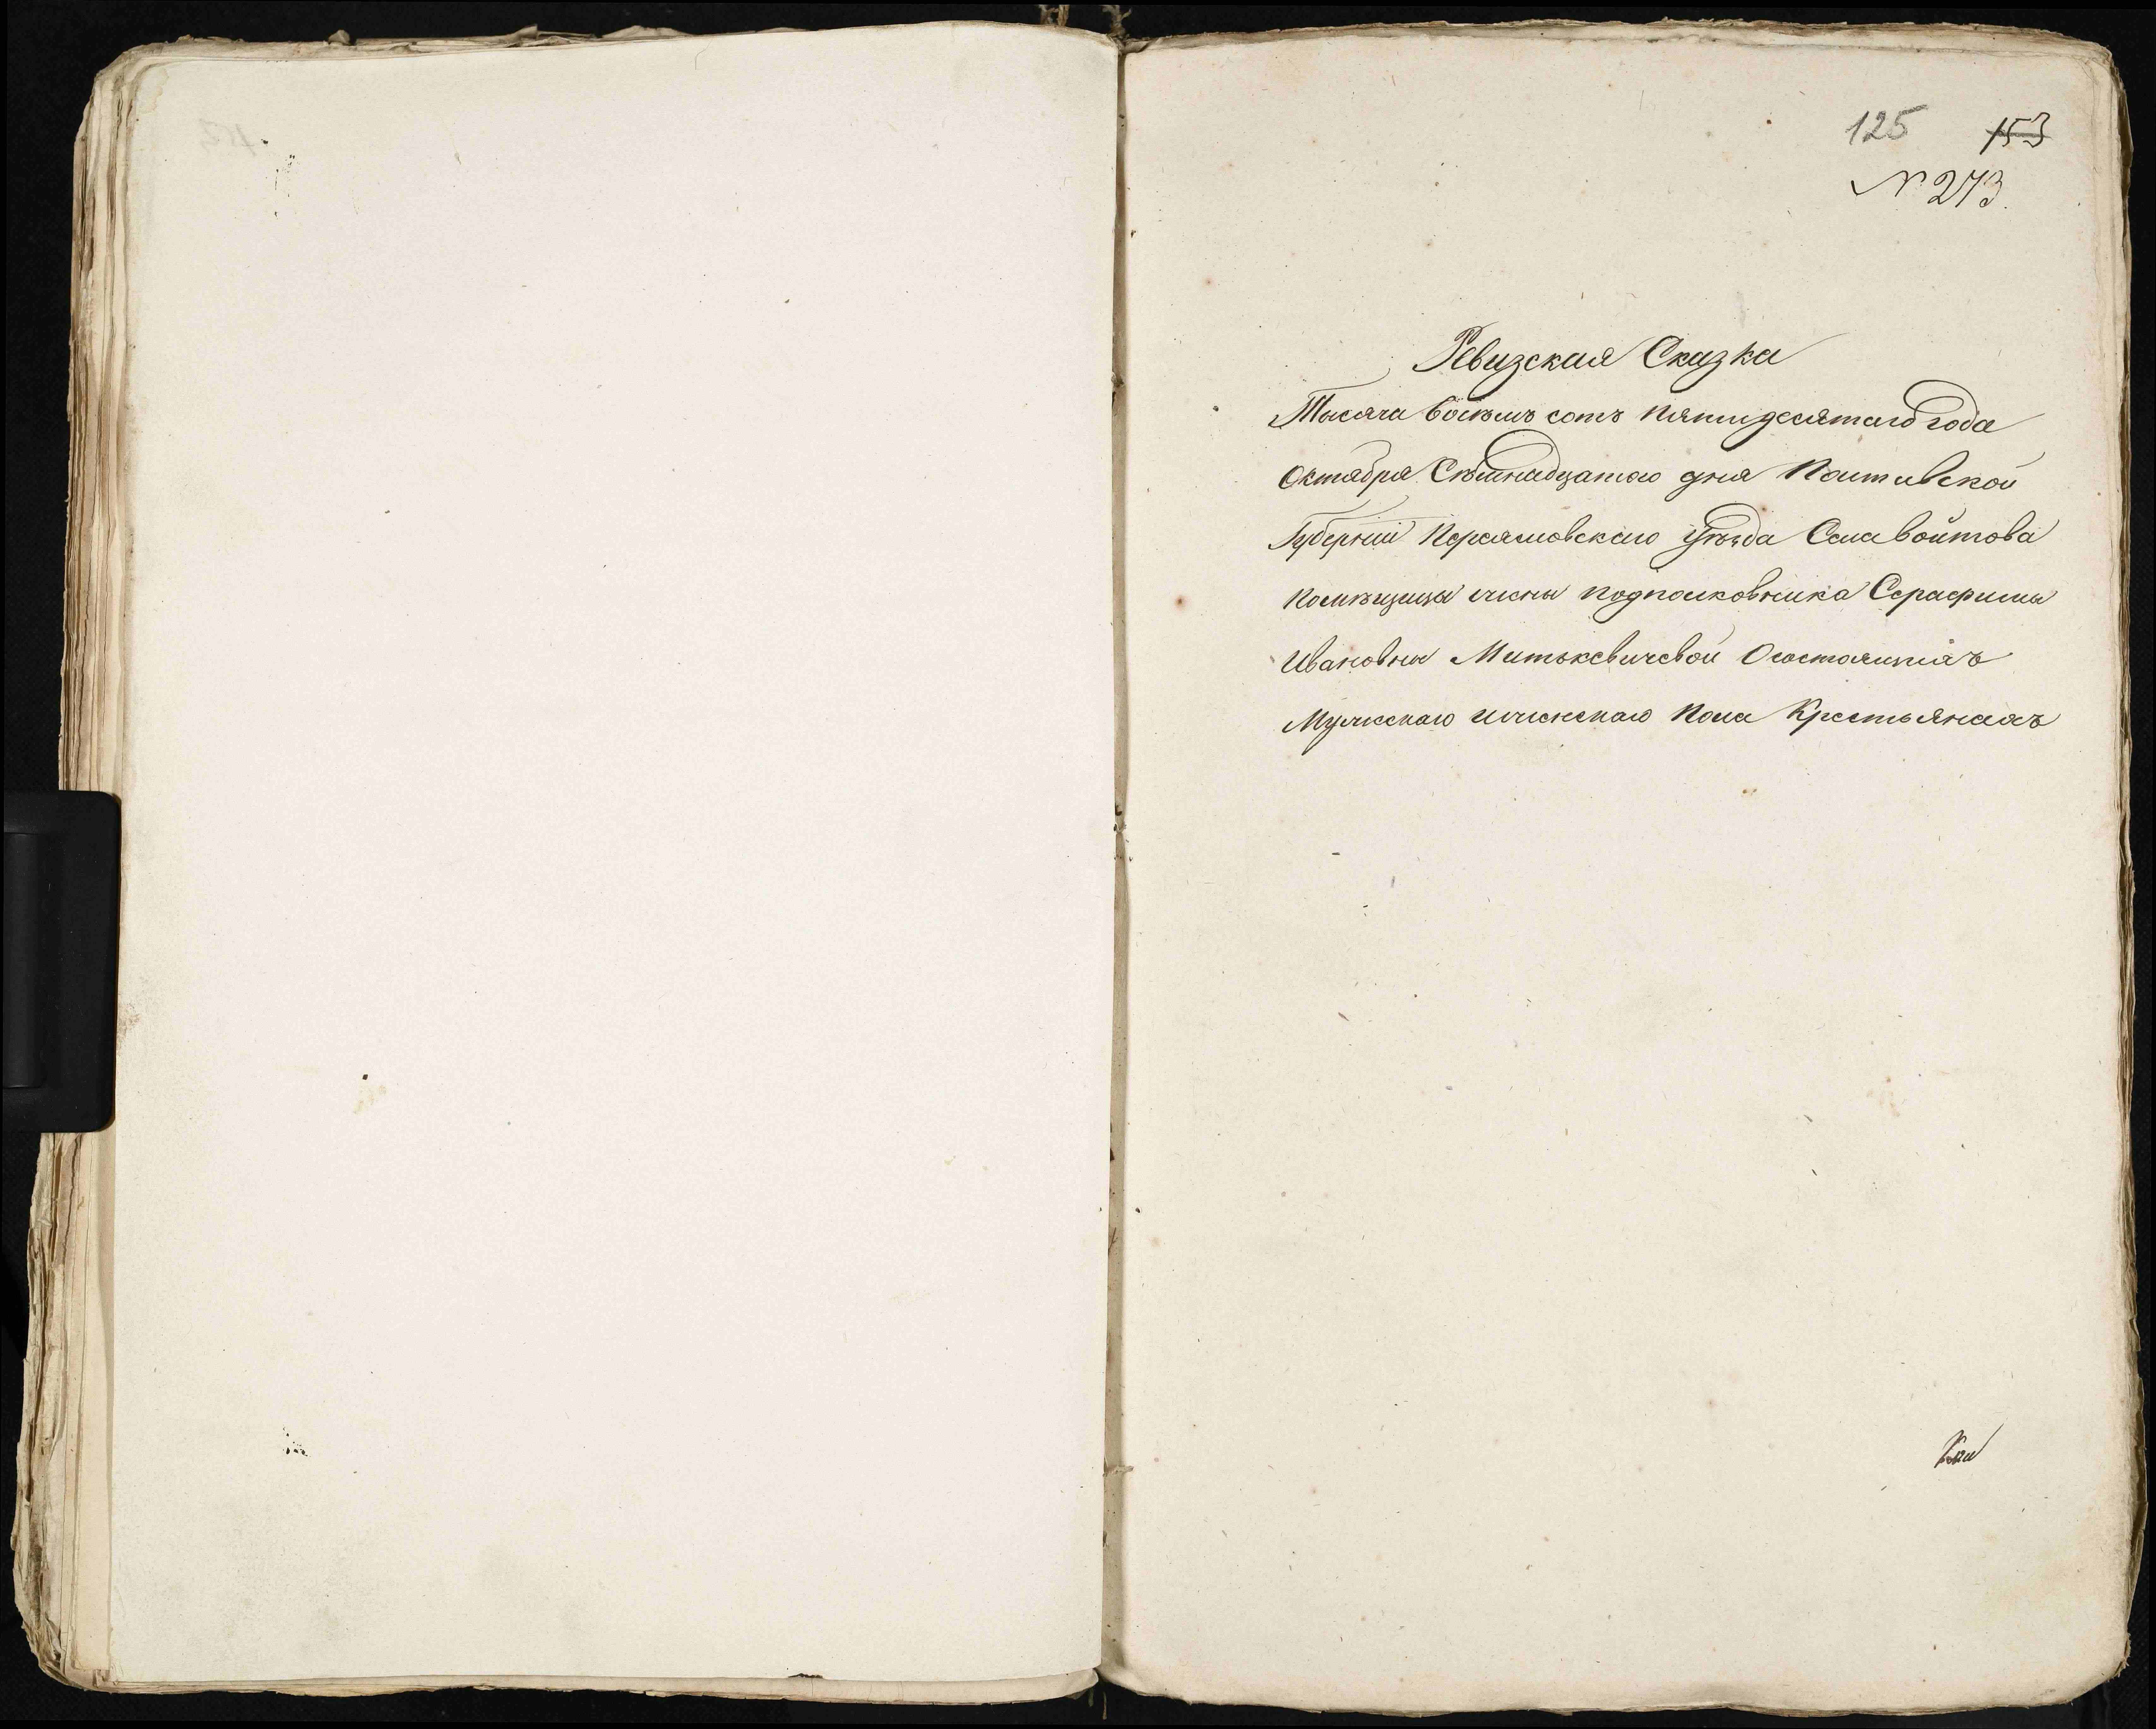 125 153
№ 273.
Ревизская Сказка
Тысяча восѣмъ сотъ пятидесятаго года
Октября Сѣмнадцатаго дня Полтавской
Губерніи Переяславскаго уѣзда Села Войтова
помѣщицы жены подполковника Серафимы
Ивановны Митькевичевой Осостоящихъ
Мужескаго иженскаго пола Крестьянахъ